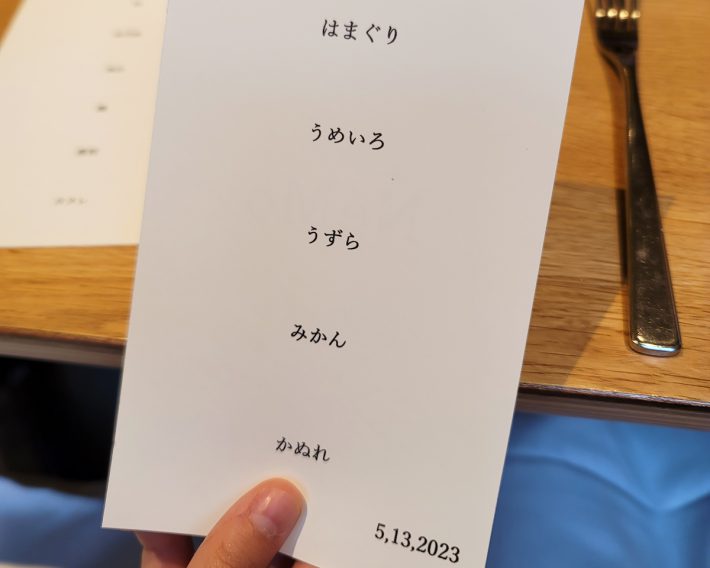 はまぐり
うめいろ
うずら
みかん
かぬれ
5,13,2023